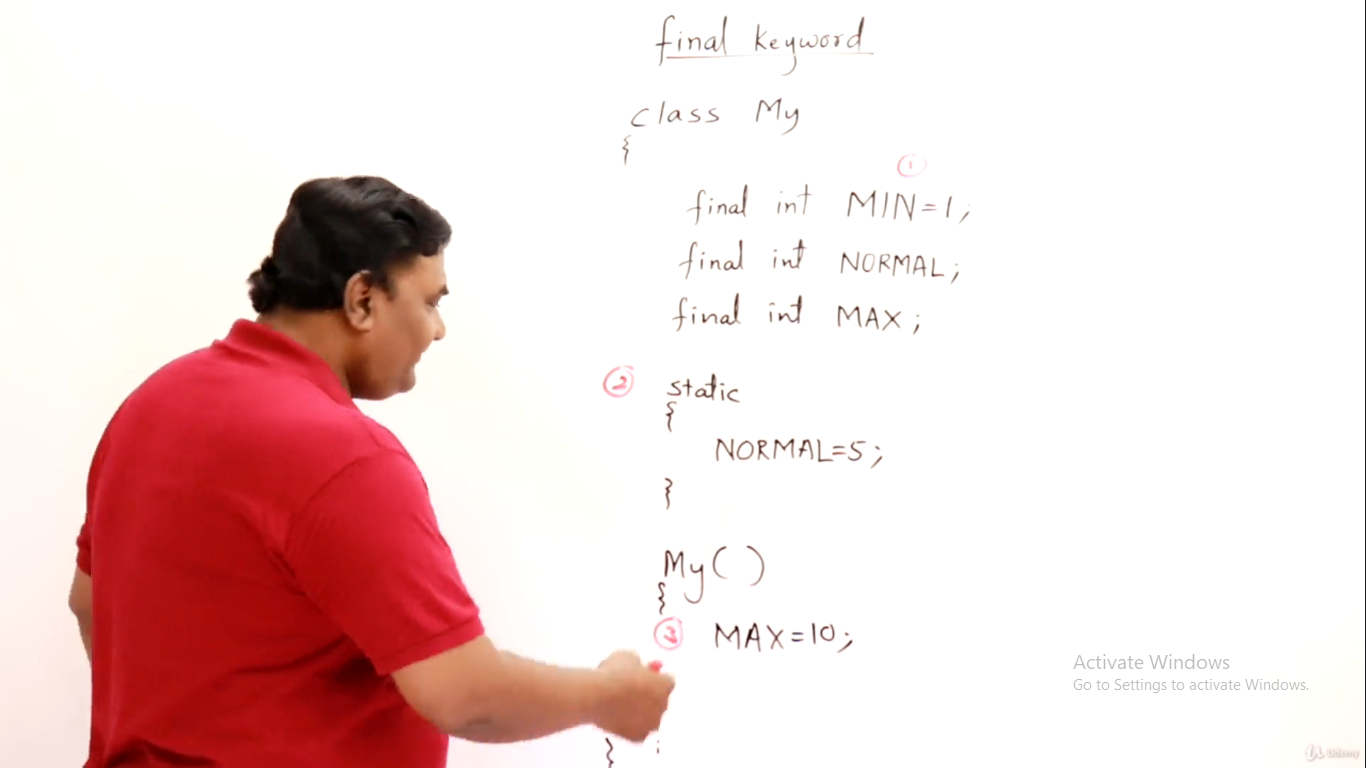 final keyword
class My
{
①
final int MIN=1;
final int NORMAL;
final int MAX;
② static
{
NORMAL=5;
}
My( )
{
③ MAX=10;
}
Activate Windows
Go to Settings to activate Windows.
Udemy